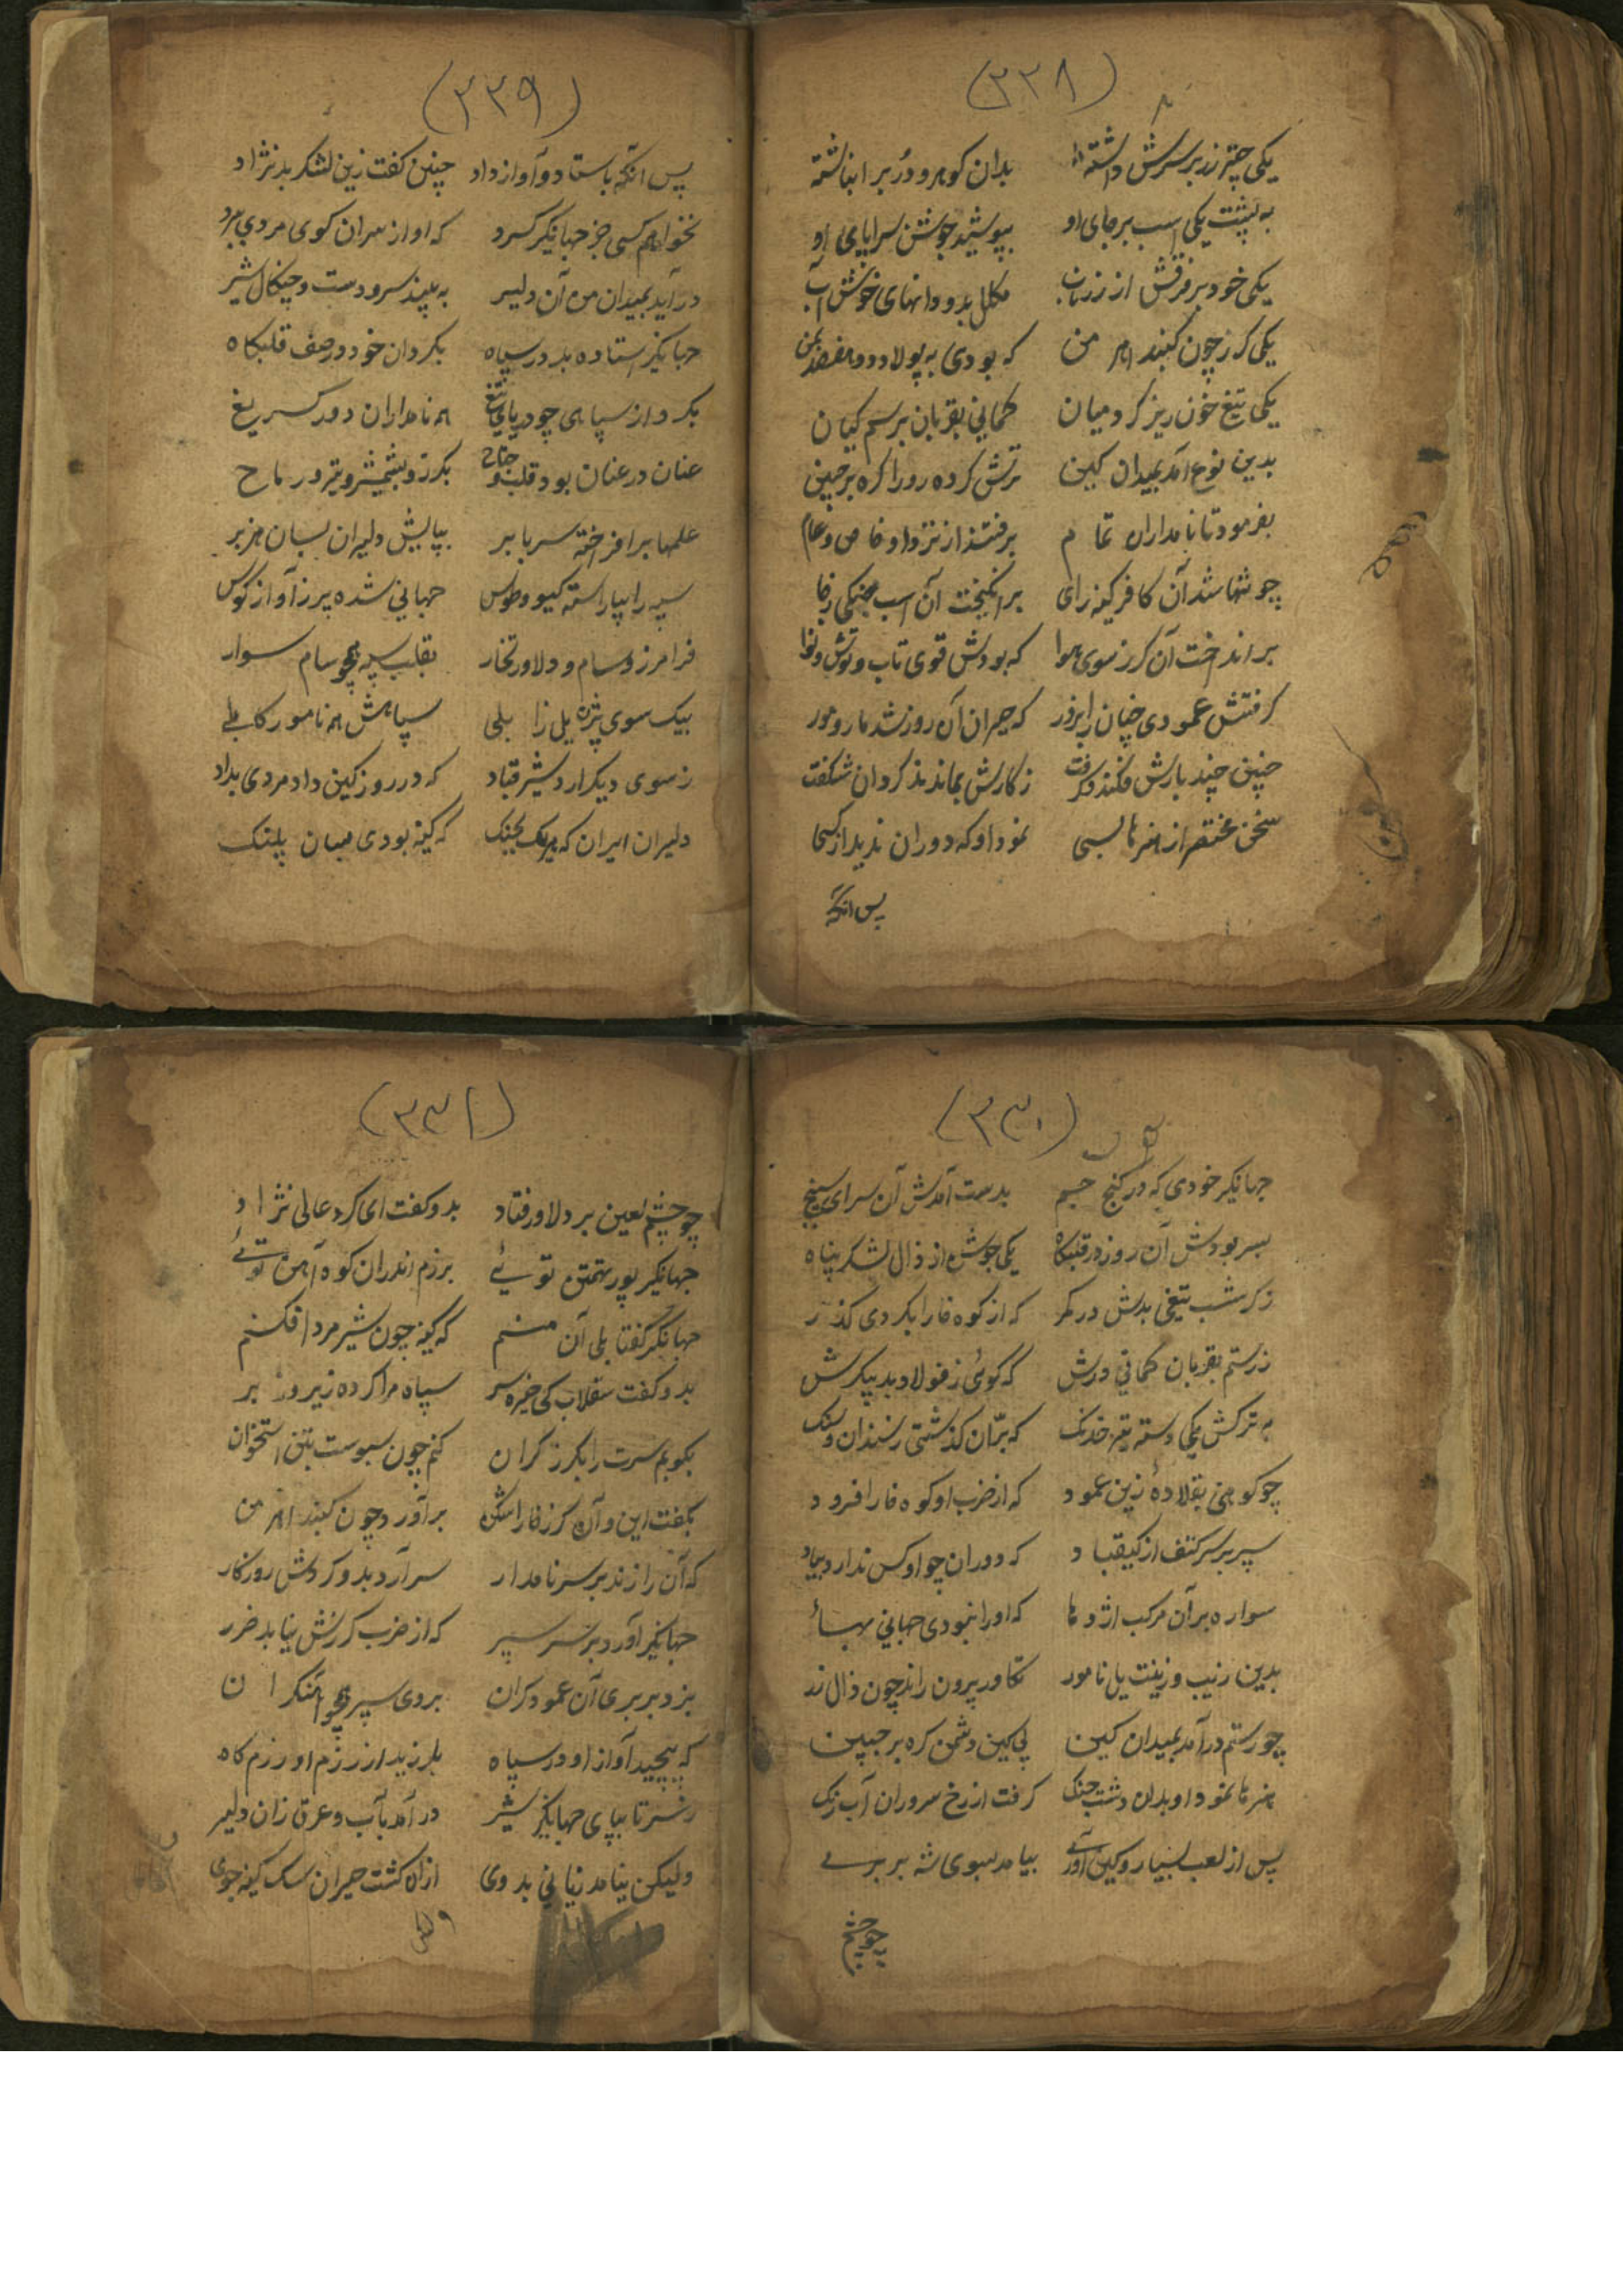 (۳۲۸)
یکی چتر زر بر سرش داشته بدان کوهر و در بر انباشته
به پشت یکی اسب بر جای او بپوشید جوشن سراپای او
یکی خود بر فرقش از زر ناب مکلل بدو دانهای خوش آب
یکی کرز چون کنبد اهر من که بودی به پولاد
یکی تیغ خون ریز کرد میان کمانی بقربان برسم کیان
بدین نوع آمد بمیدان کین ترش کرده رو را کره بر جبین
بفرمود تا نامداران تمام برفتند از نزد او خاص و عام
چو تنها شد آن کافر کینه رای بر انکیخت آن اسب جنکی ز جا
بر انداخت آن کرز سوی هوا که بودش قوی تاب و توش و نوا
کرفتش عمودی چنان را بزور که حیران آن روز شد مار و مور
چنین چند بارش فکند و کرفت ز کارش بماندند کردان شکفت
سخن مختصر از هنرها بسی نمود او که دوران ندید از کسی
پس انکه
(۳۲۹)
پس انکه باستاد و آواز داد چنین کفت زین لشکر بد نژاد
نخواهم کسی جز جهانکیر کرد که او از سران کوی مردی ببرد
در آید بمیدان من آن دلیر به بیند سر و دست و چنکال شیر
جهانکیر استاده بد در سپاه بکردان خود در صف قلبکاه
بکرد از سپاهی چو دریای تیغ همه نامداران دور کسر یغ
عنان در عنان بود قلب و جناح بکرز و بشمشیر و تیر و رماح
علمها بر افراخته سر بابر بپایش دلیران بسان هزبر
سپه را بیاراسته کیو و طوس جهانی شده پر ز آواز کوس
فرامرز و سام و دلاور تخار بقلب سپه همچو سام سوار
بیک سوی بیژه یلی زابلی سپاهش همه نامور کابلی
ز سوی دیکر ارد شیر قباد که در روز کین داد مردی بداد
دلیران ایران که هر یک بجنک که کینه بودی بسان پلنک
(۳۳۰)
جهانکیر خودی که در کنج جم بدست آمدش آن سرای سپنج
بسر بودش آن روز در قلبکاه یکی جوشن از زال لشکر پناه
ز کرشسب تیغی بدش در کمر که از کوه خارا بکردی کذر
ز رستم بقربان کمانی درش که کوئی ز فولاد بد پیکرش
به ترکش یکی دسته تیر خدنک که بران کذشتی ز سندان و سنک
چو کوهی بقلادهٔ زین عمود که از ضرب او کوه خارا فرود
سپر بر سر کتف از کیقباد که دوران چو او کس ندارد بیاد
سواره بر آن مرکب اژدها که او را نبودی جهانی بها
بدین زیب و زینت یل نامور تکاور برون راند چون زال زر
چو رستم در آمد بمیدان کین پی کین دشمن کره بر جبین
هنرها نمود او بدان دشت جنک کرفت از رخ سروران آب رنک
پس از لعب بسیار و کین آوری بیامد بسوی شه بربری
چو چشم
(۳۳۱)
چو چشم لعین بر دلاور فتاد بدو کفت ای کرد عالی نژاد
جهانکیر پور تهمتن توئی برزم اندران کوه آهن توئی
جهانکیر کفتا بلی آن منم که کینه چون شیر مرد افکنم
بدو کفت سقلاب کی خیره سر سپاه مرا کرده زیر و زبر
بکوبم سرت را بکرز کران کنم چون سبوست بتن استخوان
بکفت این و آن کرز خارا شکن بر آورد چون کنبد اهر من
که آن را زند بر سر نامدار سر آرد بدو کردش روزکار
جهانکیر آورد بر سر سپر که از ضرب کرزش نیابد ضرر
بزد بربری آن عمود کران بروی سپر همچو آهنکران
که پیچید آواز او در سپاه بلرزید از رزم او رزم کاه
ز سر تا بپای جهانکیر شیر در آمد بآب و عرق زان دلیر
ولیکن نیامد زیانی بدوی ازان کشت حیران سک کینه جوی